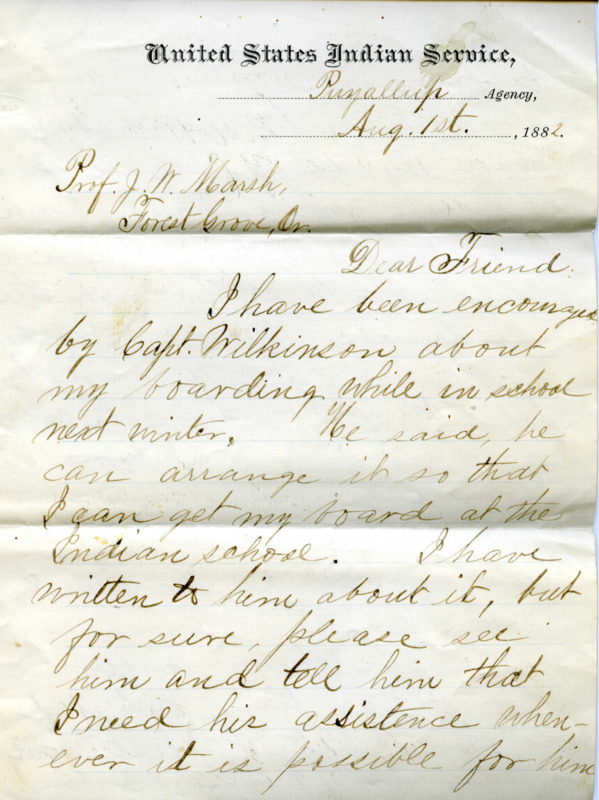 United States Indian Service,
Puyallup Agency,
Aug. 1st. , 1882.
Prof. J. W. Marsh,
Forest Grove, Or.
Dear Friend:
I have been encouraged
by Capt. Wilkinson about
my boarding while in school
next winter. He said, he
can arrange it so that
I can get my board at the
Indian school. I have
written to him about it, but
for sure, please see
him and tell him that
I need his assistence when-
ever it is possible for him